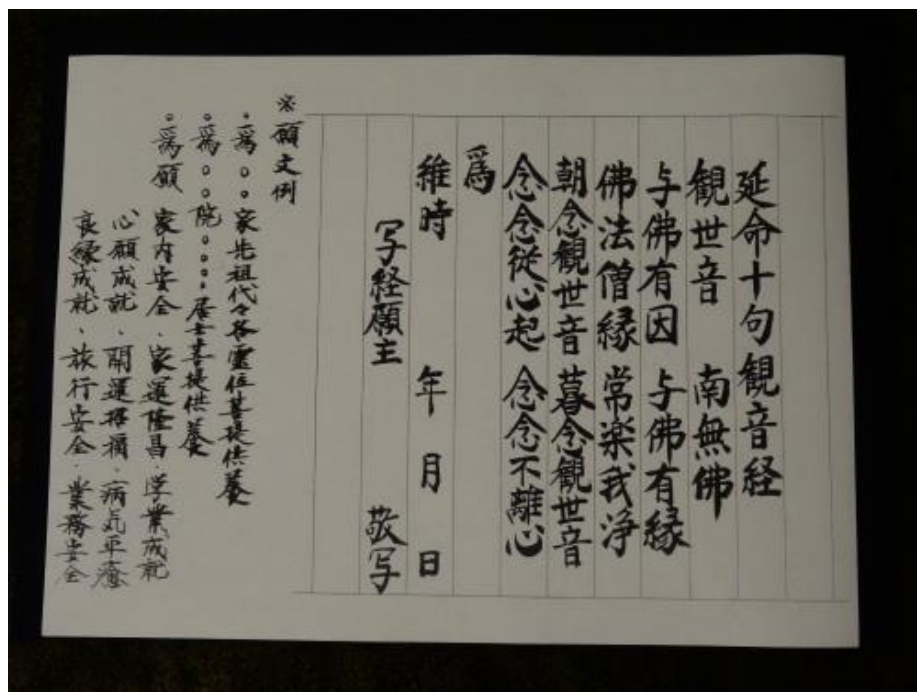 延命十句観音経
観世音 南無佛
与佛有因 与佛有縁
佛法僧縁 常楽我浄
朝念観世音 暮念観世音
念念従心起 念念不離心
為
維時 年 月 日
写経願主 敬写
※願文例
・為。。家先祖代々各霊位菩提供養
。為。。院。。。。居士菩提供養
。為願 家内安全、家運隆昌、学業成就
心願成就、開運招福、病気平癒
良縁成就、旅行安全、業務安全